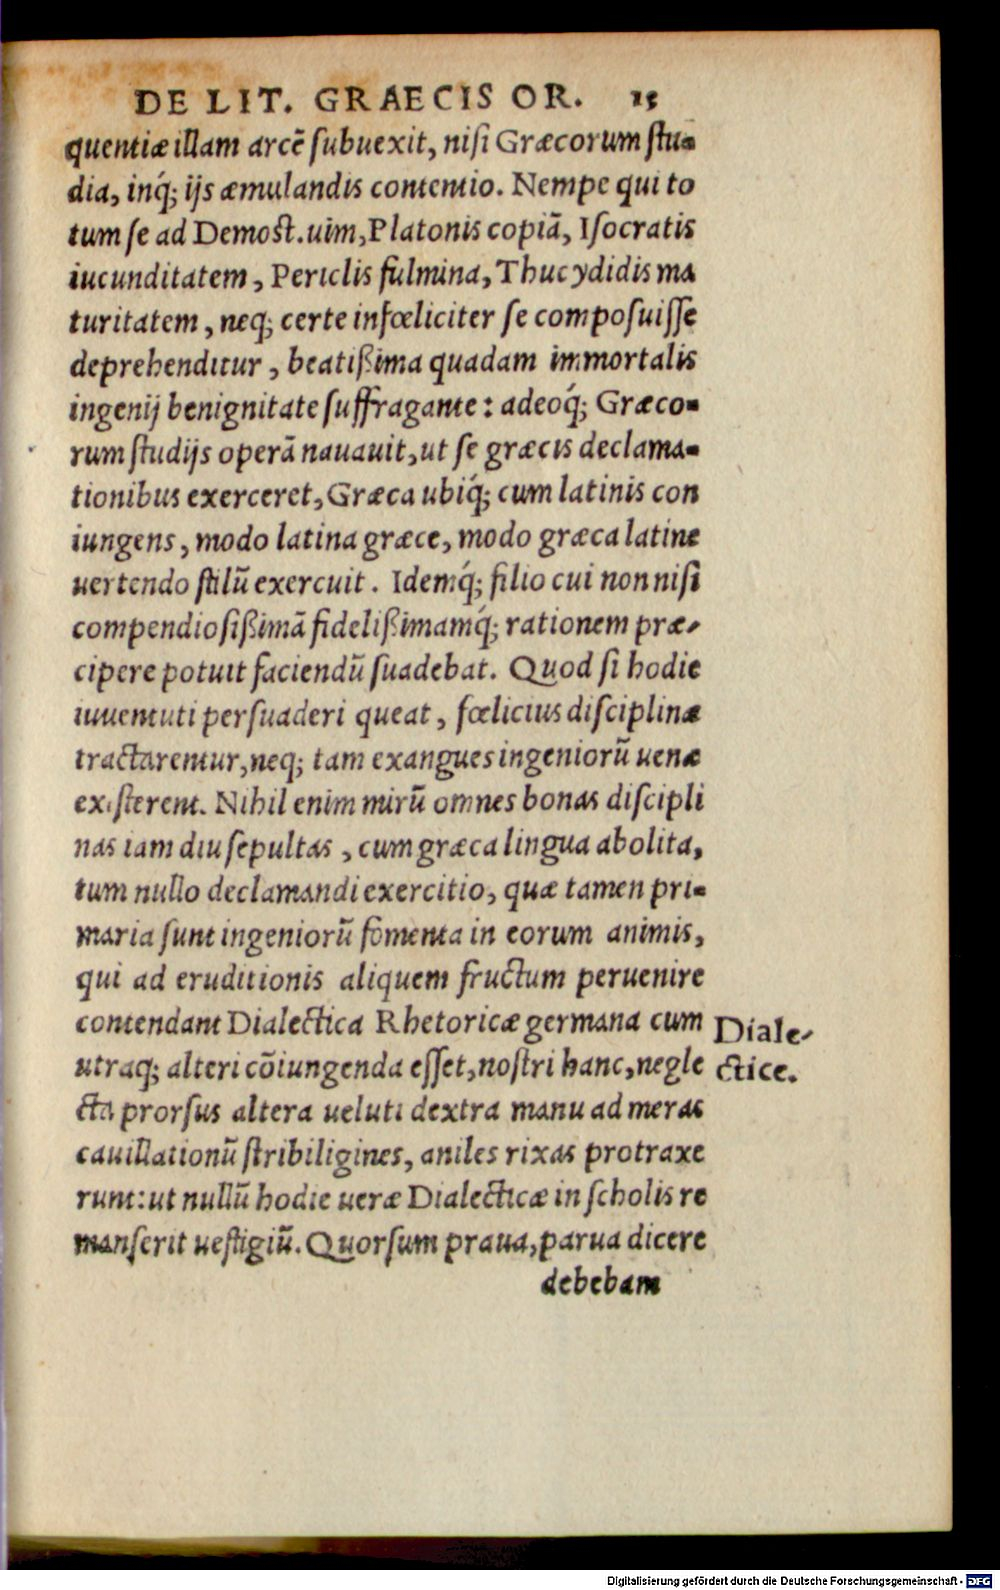 DE LIT. GRAECIS OR. 15
quentiæ illam arcẽ subuexit, nisi Græcorum stu-
dia, inq́; ijs æmulandis contentio. Nempe qui to
tum se ad Demost. uim, Platonis copiã, Isocratis
iucunditatem, Periclis fulmina, Thucydidis ma
turitatem, neq; certe infœliciter se composuisse
deprehenditur, beatißima quadam immortalis
ingenij benignitate suffragante: adeoq́; Græco-
rum studijs operã nauauit, ut se græcis declama-
tionibus exerceret, Græca ubiq́; cum latinis con
iungens, modo latina græce, modo græca latine
uertendo stilũ exercuit. Idemq́; filio cui non nisi
compendiosißimã fidelißimamq́; rationem præ-
cipere potuit faciendũ suadebat. Quod si hodie
iuuentuti persuaderi queat, fœlicius disciplinæ
tractarentur, neq; tam exangues ingeniorũ uenæ
existerent. Nihil enim mirũ omnes bonas discipli
nas iam diu sepultas, cum græca lingua abolita,
tum nullo declamandi exercitio, quæ tamen pri-
maria sunt ingeniorũ fomenta in eorum animis,
qui ad eruditionis aliquem fructum peruenire
contendant Dialectica Rhetoricæ germana cum
utraq; alteri cõiungenda esset, nostri hanc, negle
cta prorsus altera ueluti dextra manu ad meras
cauillationũ stribiligines, aniles rixas protraxe
runt: ut nullũ hodie ueræ Dialecticæ in scholis re
manserit uestigiũ. Quorsum praua, parua dicere
debebam
Diale-
ctice.
Digitalisierung gefördert durch die Deutsche Forschungsgemeinschaft - DFG